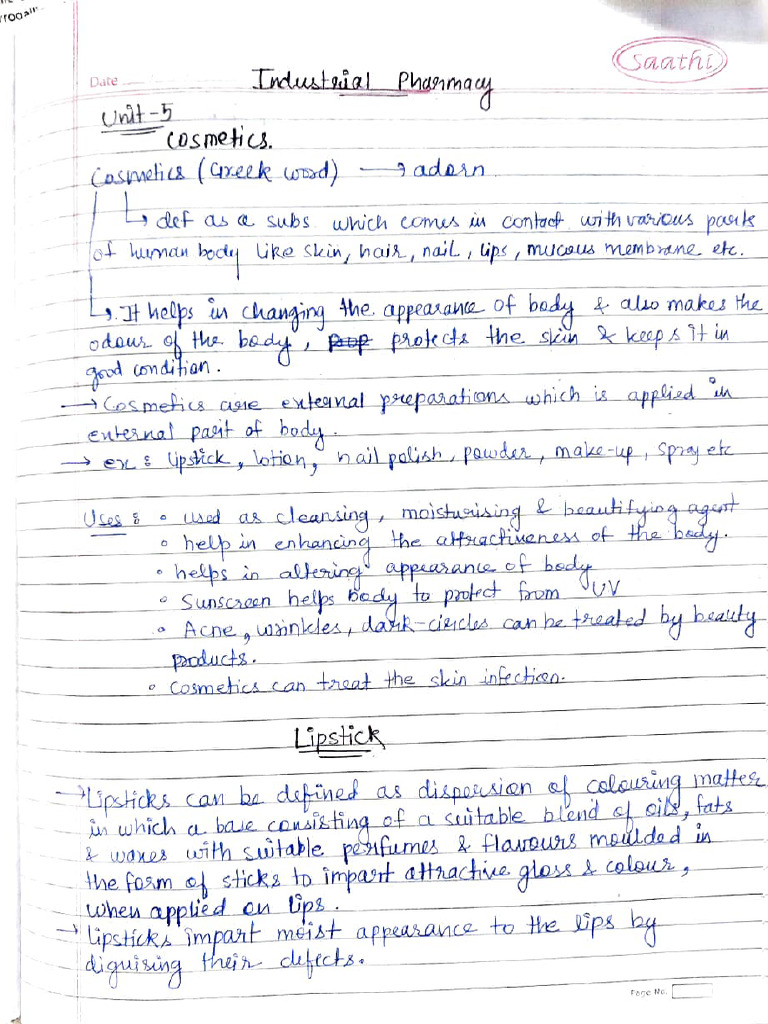 saathi
Date
Industrial Pharmacy
Unit-5
Cosmetics.
Cosmetics (Greek word) → adorn
↳ def as a subs which comes in contact with various parts
of human body like skin, hair, nail, lips, mucous membrane etc.
↳. It helps in changing the appearance of body & also makes the
odour of the body, protects the skin & keeps it in
good condition.
→ Cosmetics are external preparations which is applied in
external part of body.
→ ex : lipstick, lotion, nail polish, powder, make-up, spray etc
Uses : • used as cleansing, moisturising & beautifying agent
• help in enhancing the attractiveness of the body.
• helps in altering appearance of body
• Sunscreen helps body to protect from UV
• Acne, wrinkles, dark-circles can be treated by beauty
products.
• Cosmetics can treat the skin infection.
Lipstick
→ Lipsticks can be defined as dispersion of colouring matter
in which a base consisting of a suitable blend of oils, fats
& waxes with suitable perfumes & flavours moulded in
the form of sticks to impart attractive gloss & colour,
when applied on lips.
→ lipsticks impart moist appearance to the lips by
diguising their defects.
Page No.